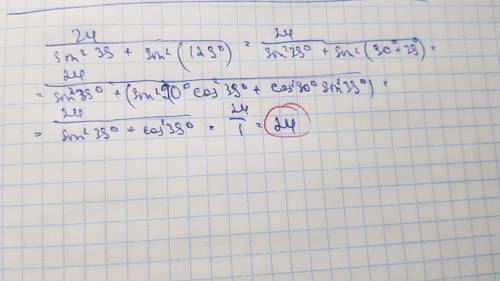 24 / (sin² 39 + sin² (129°)) = 24 / (sin² 39° + sin² (90° + 39°)) =
= 24 / (sin² 39° + (sin² 90° cos² 39° + cos² 90° sin² 39°)) =
= 24 / (sin² 39° + cos² 39°) = 24/1 = 24